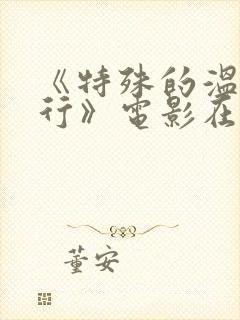 《特殊的温
行》电影在
董安